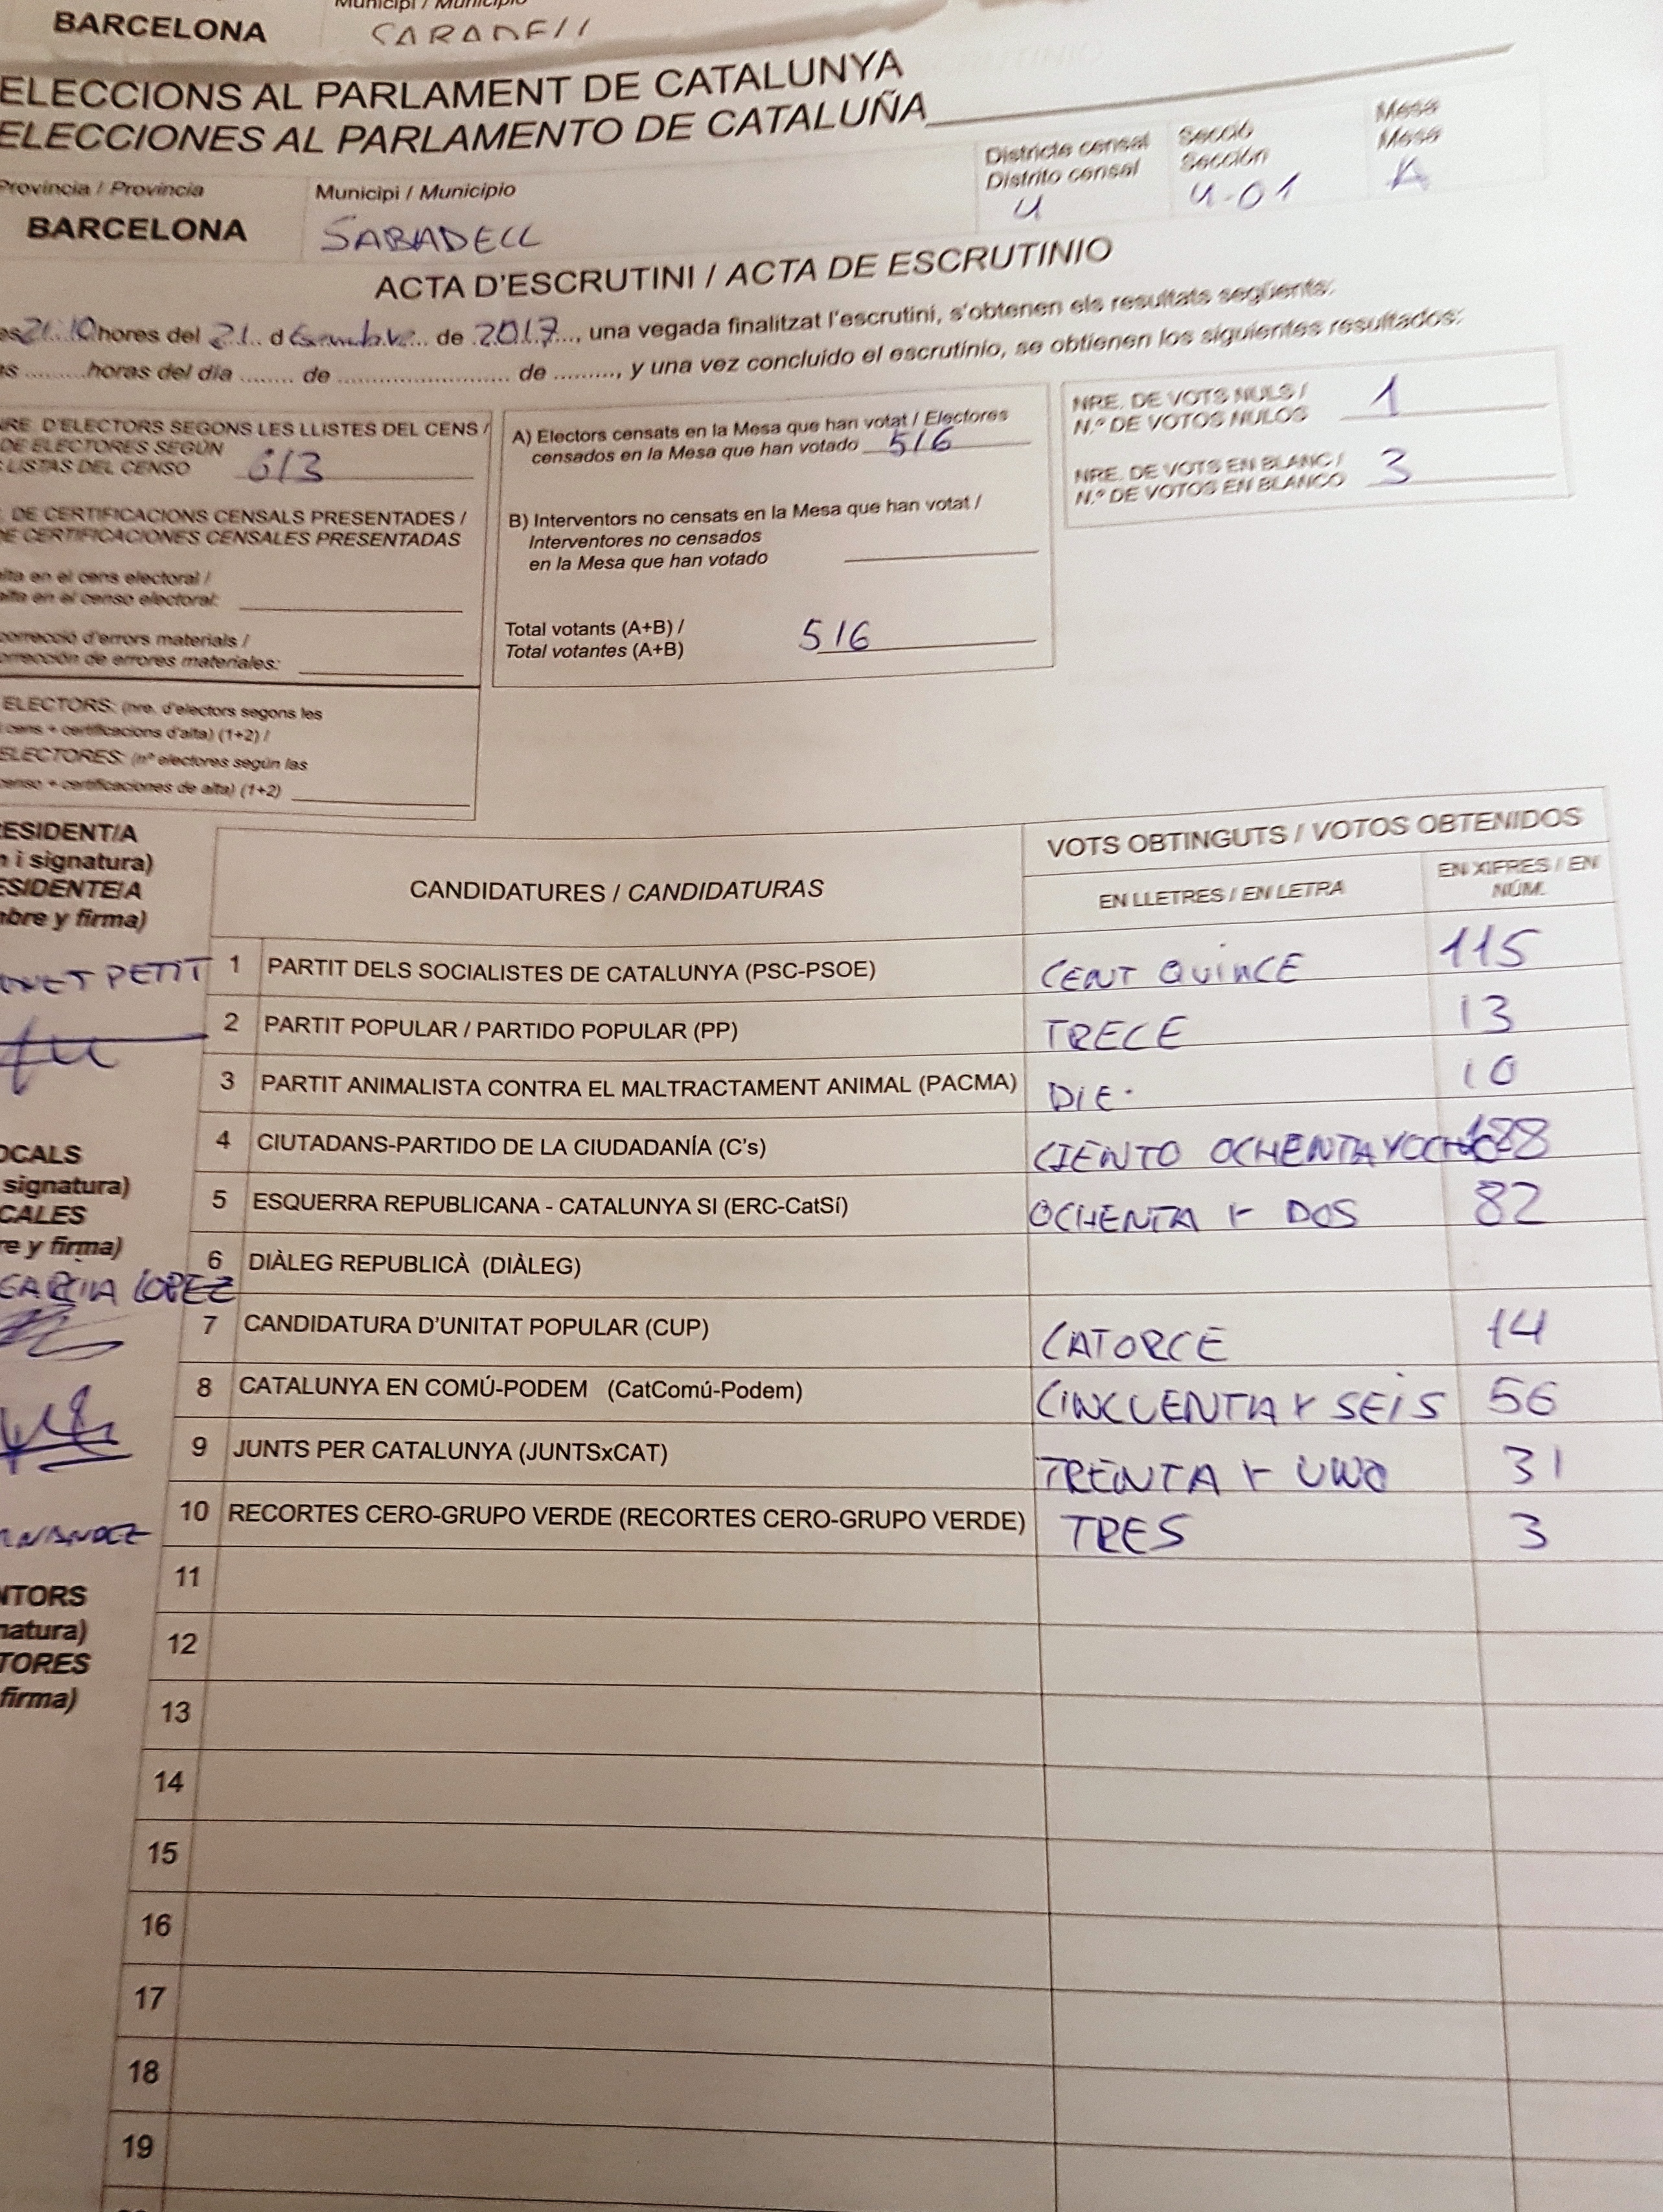 Municipi / Municipio
BARCELONA
SABADELL
ELECCIONS AL PARLAMENT DE CATALUNYA
ELECCIONES AL PARLAMENTO DE CATALUÑA
Districte censal
Distrito censal
4
Secció
Sección
4-01
Mesa
Mesa
A
Provincia / Provincia
BARCELONA
Municipi / Municipio
SABADELL
ACTA D'ESCRUTINI / ACTA DE ESCRUTINIO
es 21:10 hores del 21 d de 2017, una vegada finalitzat l'escrutini, s'obtenen els resultats següents:
as ......... horas del dia ........ de .......................... de ........., y una vez concluido el escrutinio, se obtienen los siguientes resultados:
NRE. D'ELECTORS SEGONS LES LLISTES DEL CENS /
DE ELECTORES SEGÚN
LISTAS DEL CENSO 613
. DE CERTIFICACIONS CENSALS PRESENTADES /
DE CERTIFICACIONES CENSALES PRESENTADAS
alta en el cens electoral /
alta en el censo electoral:
correcció d'errors materials /
orrección de errores materiales:
ELECTORS: (nre. d'electors segons les
cens + certificacions d'alta) (1+2) /
ELECTORES: (nº electores según las
censo + certificaciones de alta) (1+2)
A) Electors censats en la Mesa que han votat / Electores
censados en la Mesa que han votado 516
B) Interventors no censats en la Mesa que han votat /
Interventores no censados
en la Mesa que han votado
Total votants (A+B) /
Total votantes (A+B) 516
NRE. DE VOTS NULS /
N.º DE VOTOS NULOS 1
NRE. DE VOTS EN BLANC /
N.º DE VOTOS EN BLANCO 3
RESIDENT/A
n i signatura)
ESIDENTE/A
mbre y firma)
PETIT
OCALS
signatura)
CALES
re y firma)
GARCIA LOPEZ
NTORS
natura)
TORES
firma)
CANDIDATURES / CANDIDATURAS
VOTS OBTINGUTS / VOTOS OBTENIDOS
EN LLETRES / EN LETRA
EN XIFRES / EN
NÚM.
1 PARTIT DELS SOCIALISTES DE CATALUNYA (PSC-PSOE) CENT QUINCE 115
2 PARTIT POPULAR / PARTIDO POPULAR (PP) TRECE 13
3 PARTIT ANIMALISTA CONTRA EL MALTRACTAMENT ANIMAL (PACMA) DIE· 10
4 CIUTADANS-PARTIDO DE LA CIUDADANÍA (C's) CIENTO OCHENTA Y OCHO 188
5 ESQUERRA REPUBLICANA - CATALUNYA SI (ERC-CatSí) OCHENTA Y DOS 82
6 DIÀLEG REPUBLICÀ (DIÀLEG)
7 CANDIDATURA D'UNITAT POPULAR (CUP) CATORCE 14
8 CATALUNYA EN COMÚ-PODEM (CatComú-Podem) CINCUENTA Y SEIS 56
9 JUNTS PER CATALUNYA (JUNTSxCAT) TREINTA Y UNO 31
10 RECORTES CERO-GRUPO VERDE (RECORTES CERO-GRUPO VERDE) TRES 3
11
12
13
14
15
16
17
18
19